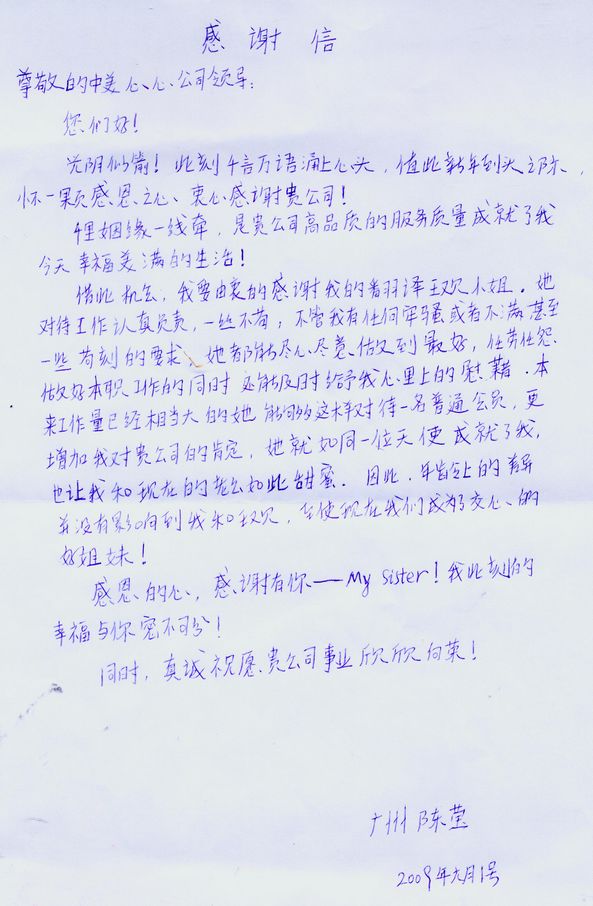 感谢信
尊敬的中美心心公司领导:
您们好!
光阴似箭!此刻千言万语涌上心头,值此新年到头之际,
怀一颗感恩之心、衷心感谢贵公司!
千里姻缘一线牵,是贵公司高品质的服务质量成就了我
今天幸福美满的生活!
借此机会,我要由衷的感谢我的翻译王欢小姐.她
对待工作认真负责,一丝不苟,不管我有任何牢骚或者不满甚至
一些苛刻的要求、她都能尽心尽意、做又到最好,任劳任怨.
做好本职工作的同时还能及时给予我心里上的慰藉.本
来工作量已经相当大的她能够这样对待一名普通会员,更
增加我对贵公司的肯定,她就如同一位天使成就了我,
也让我和现在的老公如此甜蜜.因此.年龄上的差异
并没有影响到我和王欢,至使现在我们成为交心的
好姐妹!
感恩的心,感谢有你——My sister!我此刻的
幸福与你密不可分!
同时,真诚祝愿贵公司事业欣欣向荣!
广州 陈莹
2009年 月1号